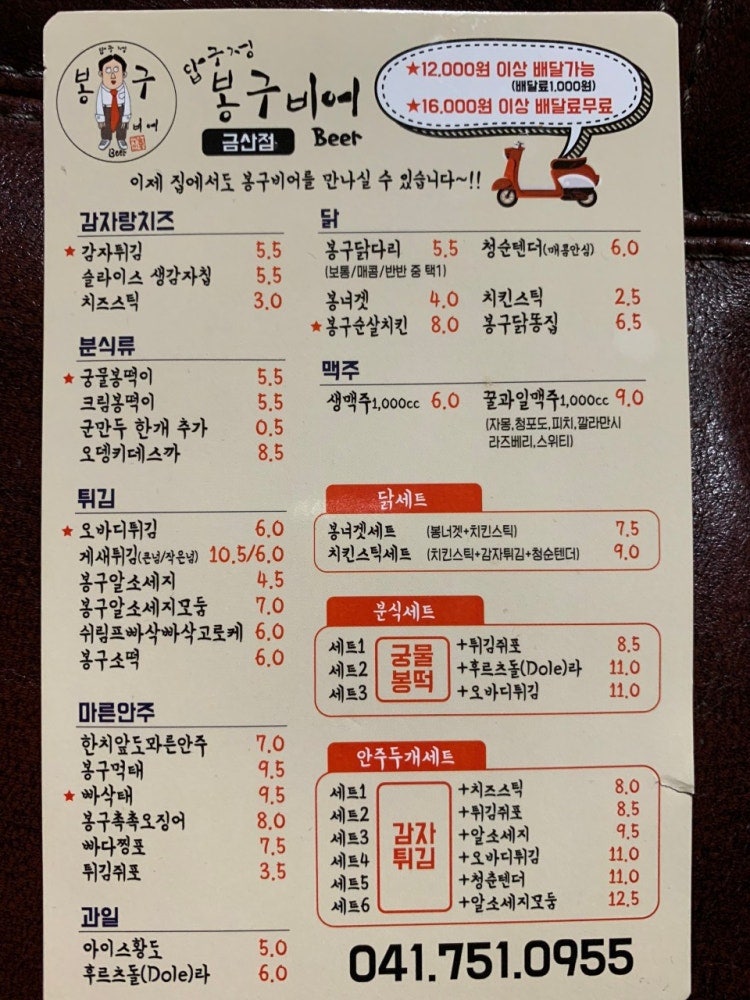 압구정
봉구
비어
Beer
압구정
봉구비어
금산점 Beer
★12,000원 이상 배달가능
(배달료1,000원)
★16,000원 이상 배달료무료
이제 집에서도 봉구비어를 만나실 수 있습니다~!!
감자랑치즈
★ 감자튀김 5.5
슬라이스 생감자칩 5.5
치즈스틱 3.0
분식류
★ 궁물봉떡이 5.5
크림봉떡이 5.5
군만두 한개 추가 0.5
오뎅키데스까 8.5
튀김
★ 오바디튀김 6.0
게새튀김(큰넘/작은넘) 10.5/6.0
봉구알소세지 4.5
봉구알소세지모둠 7.0
쉬림프빠삭빠삭고로케 6.0
봉구소떡 6.0
마른안주
한치앞도모른안주 7.0
봉구먹태 9.5
★ 빠삭태 9.5
봉구촉촉오징어 8.0
빠다찡포 7.5
튀김쥐포 3.5
과일
아이스황도 5.0
후르츠돌(Dole)라 6.0
닭
봉구닭다리 5.5 청순텐더(매콤안심) 6.0
(보통/매콤/반반 중 택1)
봉너겟 4.0 치킨스틱 2.5
★ 봉구순살치킨 8.0 봉구닭똥집 6.5
맥주
생맥주1,000cc 6.0 꿀과일맥주1,000cc 9.0
(자몽,청포도,피치,깔라만시
라즈베리,스위티)
닭세트
봉너겟세트 (봉너겟+치킨스틱) 7.5
치킨스틱세트 (치킨스틱+감자튀김+청순텐더) 9.0
분식세트
궁물
봉떡
세트1 +튀김쥐포 8.5
세트2 +후르츠돌(Dole)라 11.0
세트3 +오바디튀김 11.0
안주두개세트
감자
튀김
세트1 +치즈스틱 8.0
세트2 +튀김쥐포 8.5
세트3 +알소세지 9.5
세트4 +오바디튀김 11.0
세트5 +청춘텐더 11.0
세트6 +알소세지모둠 12.5
041.751.0955